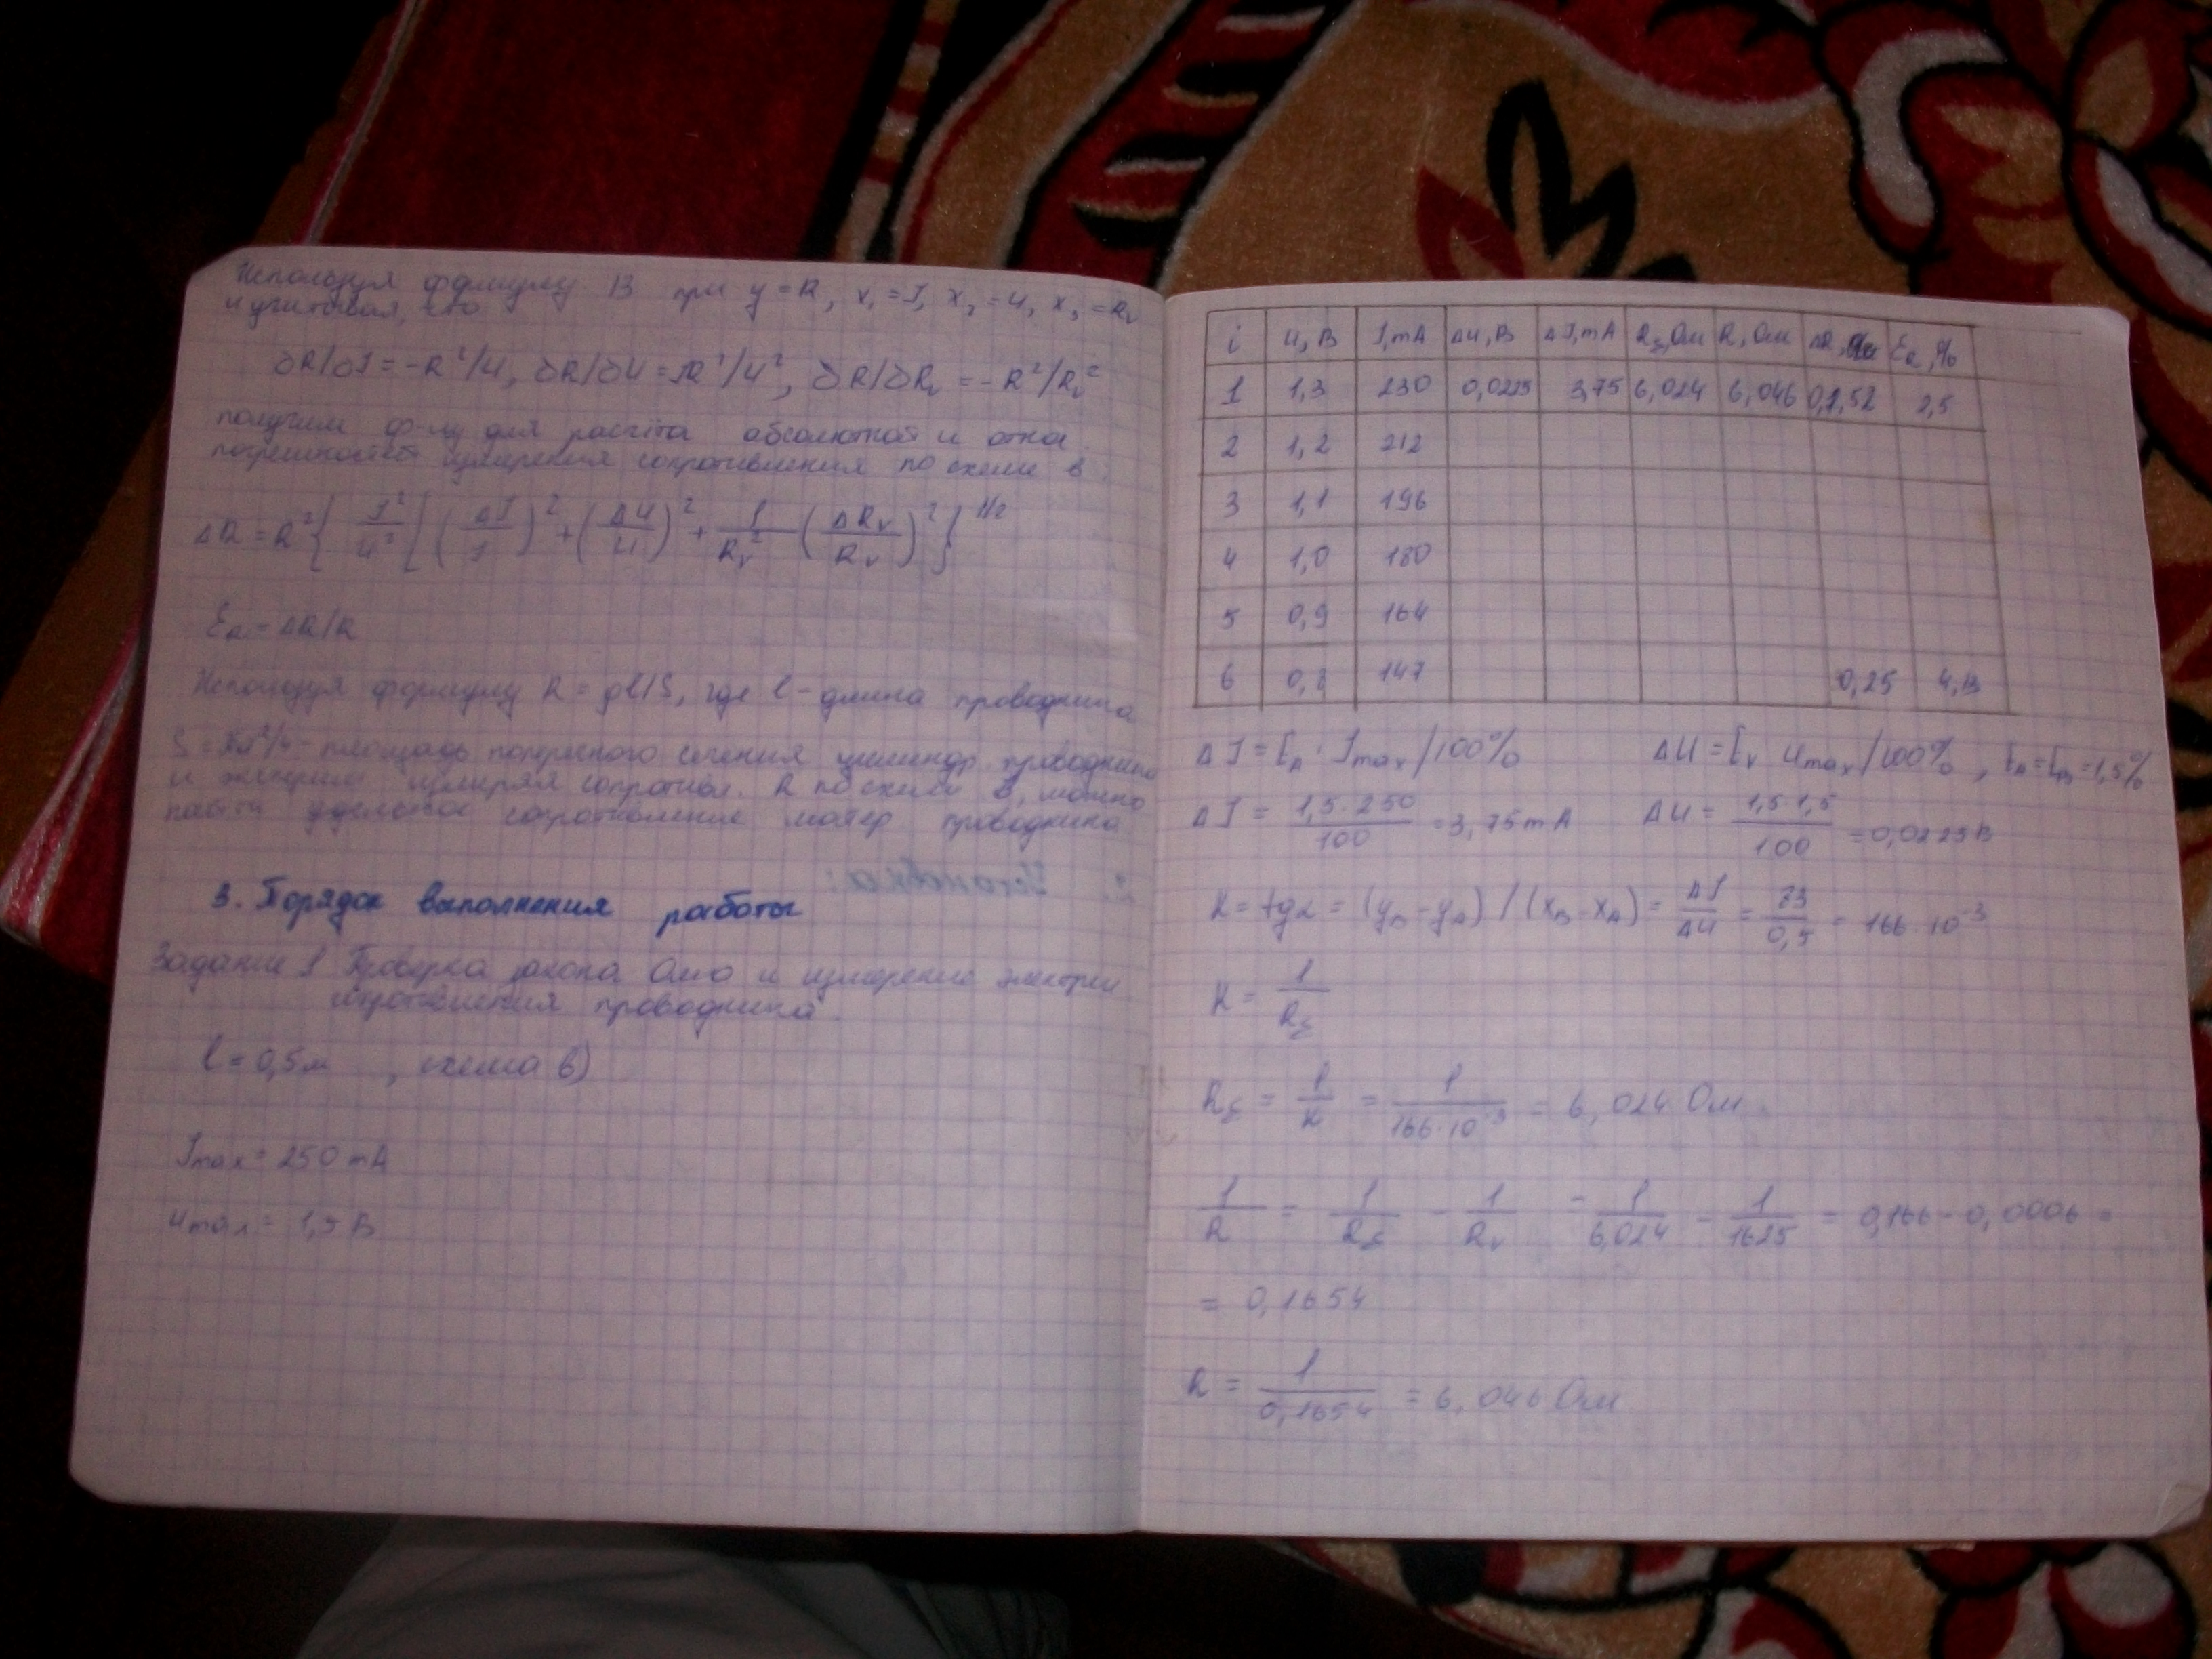 Используя формулу В при y = R, x₁ = I, x₂ = U, x₃ = Rᵥ
и учитывая, что
∂R/∂I = -R²/U, ∂R/∂U = IR²/U², ∂R/∂Rᵥ = -R²/Rᵥ²
получим ф-лу для расчёта абсолютной и относ.
погрешностей измерения сопротивления по схеме в
ΔR = R² { I²/U² [ (ΔI/I)² + (ΔU/U)² + 1/Rᵥ² (ΔRᵥ/Rᵥ)² }^1/2
Eʀ = ΔR/R
Используя формулу R = ρl/S, где l - длина проводника
S = πd²/4 - площадь поперечного сечения цилиндр. проводника
и измеряя сопротивл. R по схеме в, можно
найти удельное сопротивление матер проводника
3. Порядок выполнения работы
Задание 1 Проверка закона Ома и измерение электрич
сопротивления проводника.
l = 0,5 м , схема в)
Imax = 250 mA
Umax = 1,5 В
i U, В I, mA ΔU, В ΔI, mA R_Σ, Ом R, Ом ΔR, Ом Eʀ, %
1 1,3 230 0,0225 3,75 6,024 6,046 2,5
2 1,2 212
3 1,1 196
4 1,0 180
5 0,9 164
6 0,8 147 0,25 4,13
ΔI = Eᴀ · Imax / 100% ΔU = Eᵥ Umax / 100% , = 1,5%
ΔI = 1,5 · 250 / 100 = 3,75 mA ΔU = 1,5 · 1,5 / 100 = 0,0225 В
K = tgα = (yʙ - yᴀ) / (xʙ - xᴀ) = ΔI/ΔU = 83/0,5 = 166 · 10⁻³
K = 1/R_Σ
R_Σ = 1/K = 1/166·10⁻³ = 6,024 Ом
1/R = 1/R_Σ - 1/Rᵥ = 1/6,024 - 1/1625 = 0,166 - 0,0006 =
= 0,1654
R = 1/0,1654 = 6,046 Ом